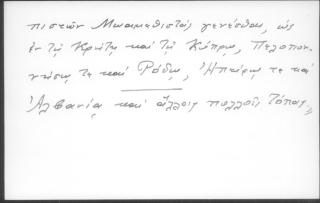 πιστῶν Μωαμεθιστὰς γενέσθαι, ὡς
ἐν τῇ Κρήτῃ καὶ τῇ Κύπρῳ, Πελοπον-
νήσῳ τε καὶ Ῥόδῳ, Ἠπείρῳ τε καὶ
Ἀλβανίᾳ καὶ ἄλλοις πολλοῖς τόποις»